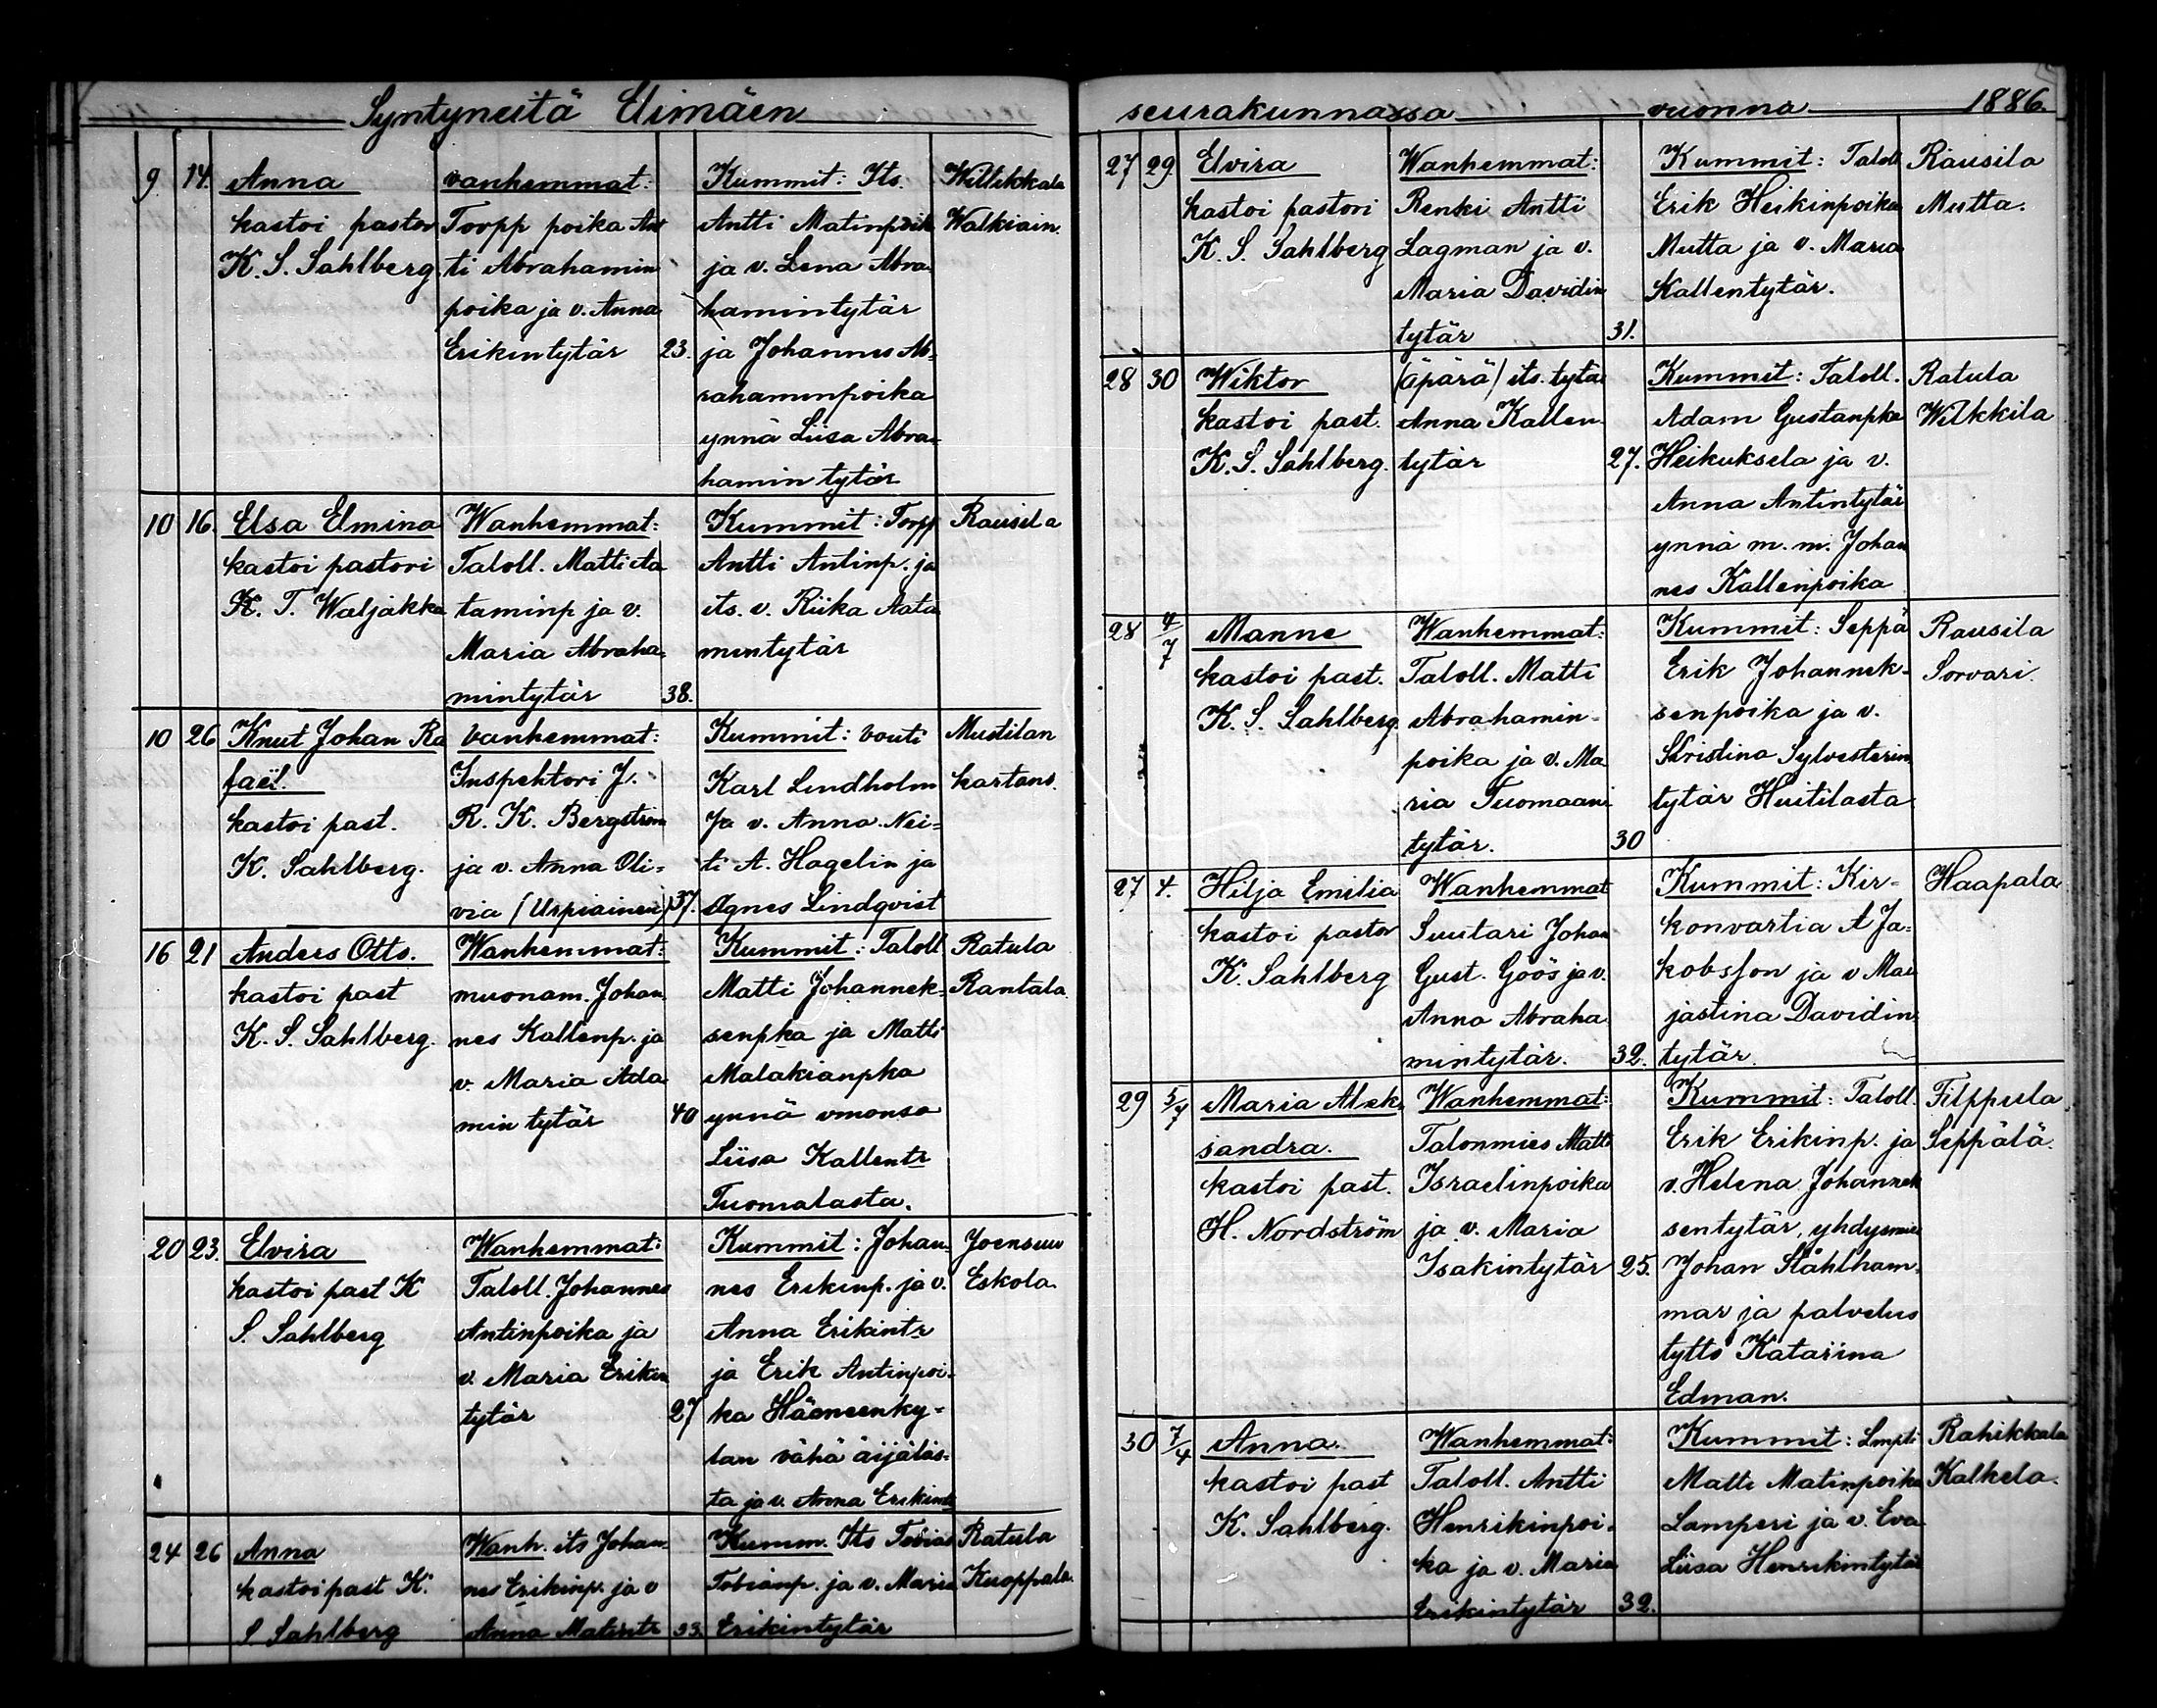 Syntyneitä Elimäen
9. 14. Anna
kastoi pastor
K. S. Sahlberg.
vanhemmat:
Torpp poika An
ti Abrahamin
poika ja v. Anna
Erikintytär 23.
Kummit: Its.
Antti Matinpoik
ja v. Lena Abra-
hamintytär
ja Johannes Ab-
rahaminpoika
ynnä Liisa Abra-
hamin tytär
Wilikkala
Walkiain.
10 16. Elsa Elmina
kastoi pastori
K. T. Waljakka
Wanhemmat:
Taloll. Matti Aa
taminp ja v.
Maria Abraha-
mintytär 38.
Kummit: Torpp
Antti Antinp. ja
its. v. Riika Aata
mintytär
Rausila
10 26 Knut Johan Ra
faël.
kastoi past.
K. Sahlberg.
vanhemmat:
Inspehtori J.
R. K. Bergström
ja v. Anna Oli-
via (Urpiainen) 37.
Kummit: vouti
Karl Lindholm
ja v. Anna. Nei-
ti A. Hagelin ja
Agnes Lindqvist
Mustilan
kartano.
16 21 Anders Otto.
kastoi past
K. S. Sahlberg.
Wanhemmat:
muonam. Johan
nes Kallenp. ja
v. Maria Ada
min tytär 40
Kummit: Taloll
Matti Johannek-
senpka ja Matti
Malakianpka
ynnä vmonsa
Liisa Kallentr
Tuomalasta.
Ratula
Rantala
20 23. Elvira
kastoi past K
S. Sahlberg
Wanhemmat:
Taloll. Johannes
Antinpoika ja
v. Maria Erikin
tytär 27
Kummit: Johan-
nes Erikinp. ja v.
Anna Erikintr
ja Erik Antinpoi-
ka Hämeenky-
län vähä äijäläs-
ta ja v. Anna Erikintr
Joensuu
Eskola.
24 26 Anna
kastoi past K.
S Sahlberg
Wanh. its Johan-
nes Erikinp. ja v
Anna Matintr 33.
Kumm. Its Tobias
Tobianp. ja v. Maria
Erikintytär
Ratula
Kuoppala
seurakunnassa vuonna 1886.
27 29. Elvira
kastoi pastori
K. S. Sahlberg
Wanhemmat:
Renki Antti
Lagman ja v.
Maria Davidin
tytär 31.
Kummit: Taloll
Erik Heikinpoika
Mutta ja v. Maria
Kallentytär.
Rausila
Mutta.
28 30 Wiktor
kastoi past.
K. S. Sahlberg.
(äpärä) its. tytär
Anna Kallen
tytär 27.
Kummit: Taloll.
Adam Gustanpka
Heikuksela ja v.
Anna Antintytär
ynnä m. m. Johan
nes Kallenpoika
Ratula
Wilkkila
28 4/7 Manne
kastoi past.
K. S. Sahlberg.
Wanhemmat:
Taloll. Matti
Abrahamin-
poika ja v. Ma
ria Tuomaan
tytär. 30
Kummit: Seppä
Erik Johannek-
senpoika ja v.
Kristina Sylvesterin
tytär Huitilasta
Rausila
Sorvari.
27 4. Hilja Emilia
kastoi pastor
K. Sahlberg
Wanhemmat
Suutari Johan
Gust. Göös ja v.
Anna Abraha
mintytär. 32.
Kummit: Kir-
konvartia A Ja-
kobsson ja v Mai
jastina Davidin
tytär.
Haapala
29 5/7 Maria Alek
sandra.
kastoi past.
H. Nordström
Wanhemmat:
Talonmies Matti
Israelinpoika
ja v. Maria
Isakintytär 25.
Kummit: Taloll.
Erik Erikinp. ja
v. Helena Johannek
sentytär, yhdysmies
Johan Ståhlham-
mar ja palvelus
tyttö Katarina
Edman.
Filppula
Seppälä.
30 7/4 Anna.
kastoi past
K. Sahlberg.
Wanhemmat:
Taloll. Antti
Henrikinpoi-
ka ja v. Maria
Erikintytär 32.
Kummit: Lmpti
Matti Matinpoika
Lamperi ja v. Eva
Liisa Henrikintytär
Rahikkala
Kalkela.